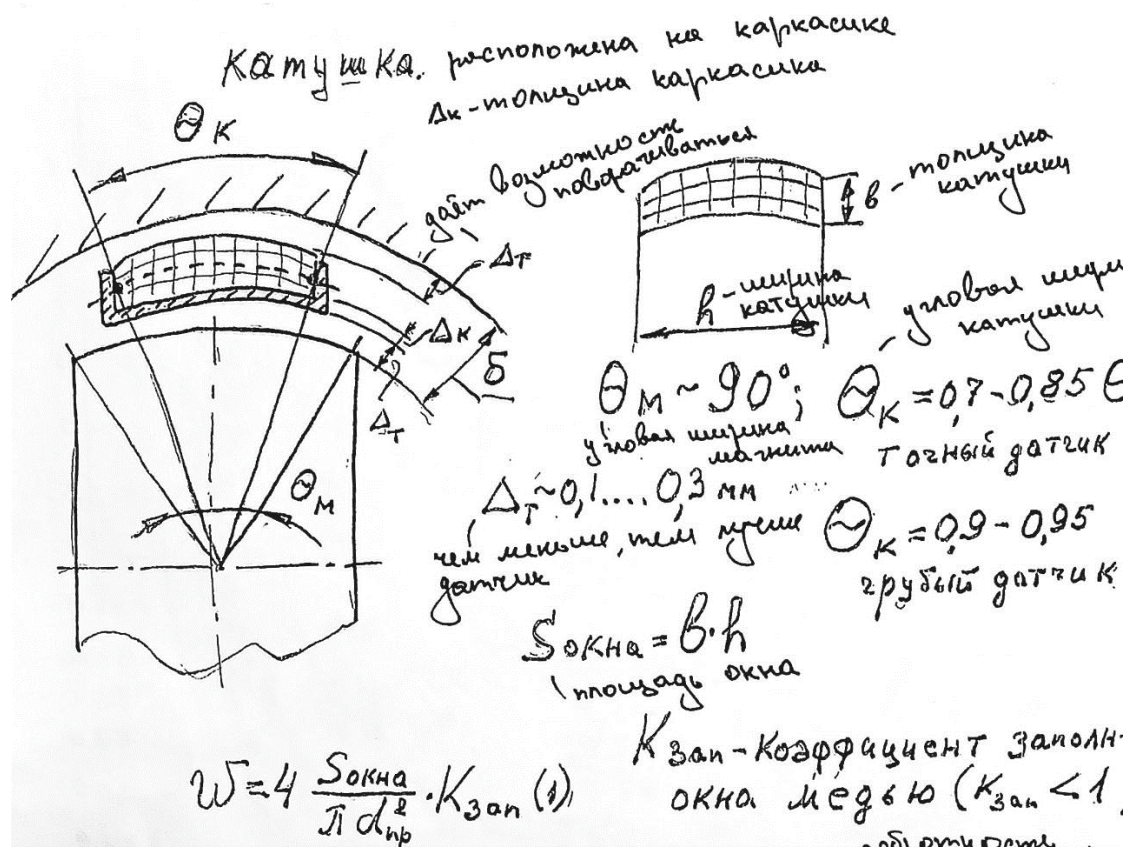 Катушка. расположена на каркасике
Δк - толщина каркасика
Θк
даёт возможность
поворачиваться
Δт
Δк
δ
Δт
Θм
в - толщина
катушки
h - ширина
катушки
угловая
катушки
Θм ~ 90°; Θк = 0,7 - 0,85 Θ
угловая ширина
магнита
точный датчик
Δт ~ 0,1....0,3 мм
чем меньше, тем лучше
датчик
Θк = 0,9 - 0,95
грубый датчик
Sокна = в·h
площадь окна
Kзап - коэффициент заполн-
окна медью (Kзап < 1
W = 4 Sокна / π d²пр · Kзап (1)